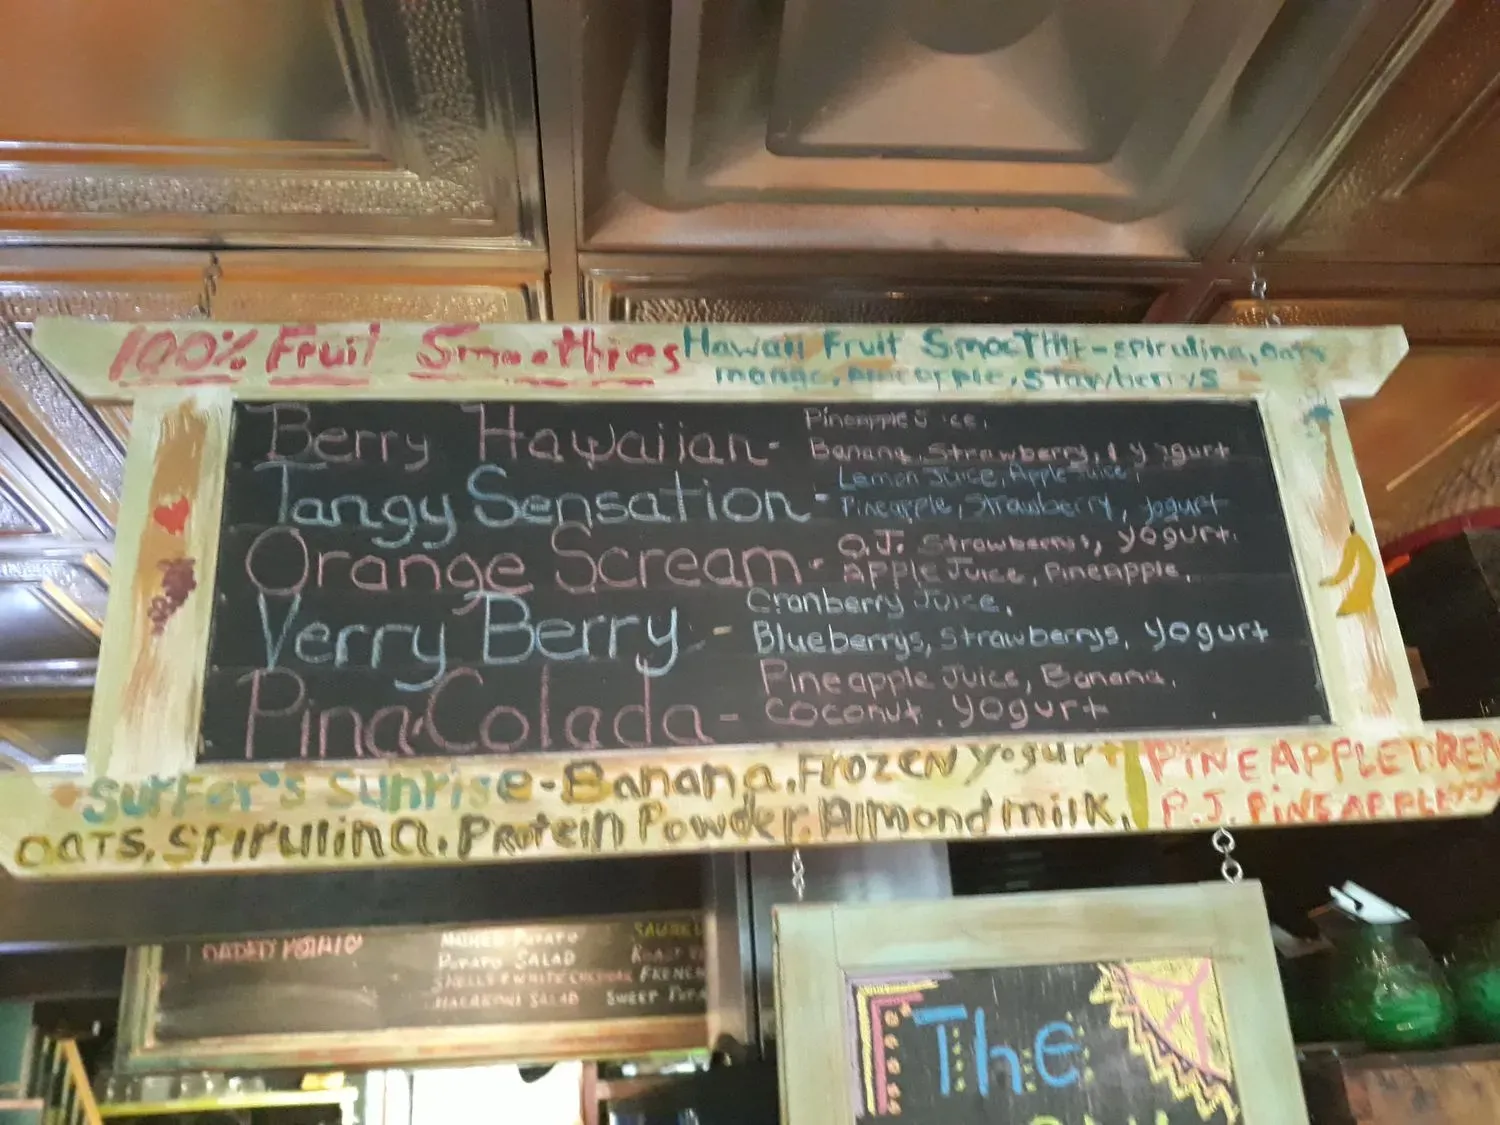 100% Fruit Smoothies Hawaii Fruit Smoothie - spirulina, oats
mango, pineapple, Strawberrys
Berry Hawaiian - Pineapple Juice,
Banana, Strawberry, & yogurt
Tangy Sensation - Lemon Juice, Apple Juice,
Pineapple, Strawberry, yogurt
Orange Scream - O.J. Strawberrys, yogurt.
Apple Juice, Pineapple,
Verry Berry - Cranberry Juice,
Blueberrys, Strawberrys, Yogurt
Pina Colada - Pineapple Juice, Banana,
Coconut, yogurt
Surfer's Sunrise - Banana, Frozen yogurt
Oats, Spirulina, Protein Powder, Almond milk,
PINEAPPLE DREA
P.J. PINEAPPLE
Potato
Potato Salad
French
Macaroni Salad Sweet
The